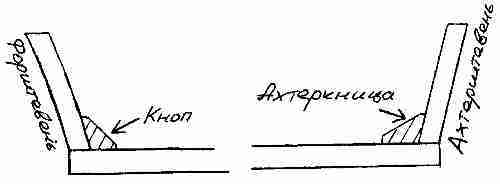 Форштевень
Кноп
Ахтеркница
Ахтерштевень